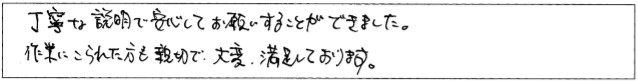 丁寧な説明で安心してお願いすることができました。
作業にこられた方も親切で、大変、満足しております。